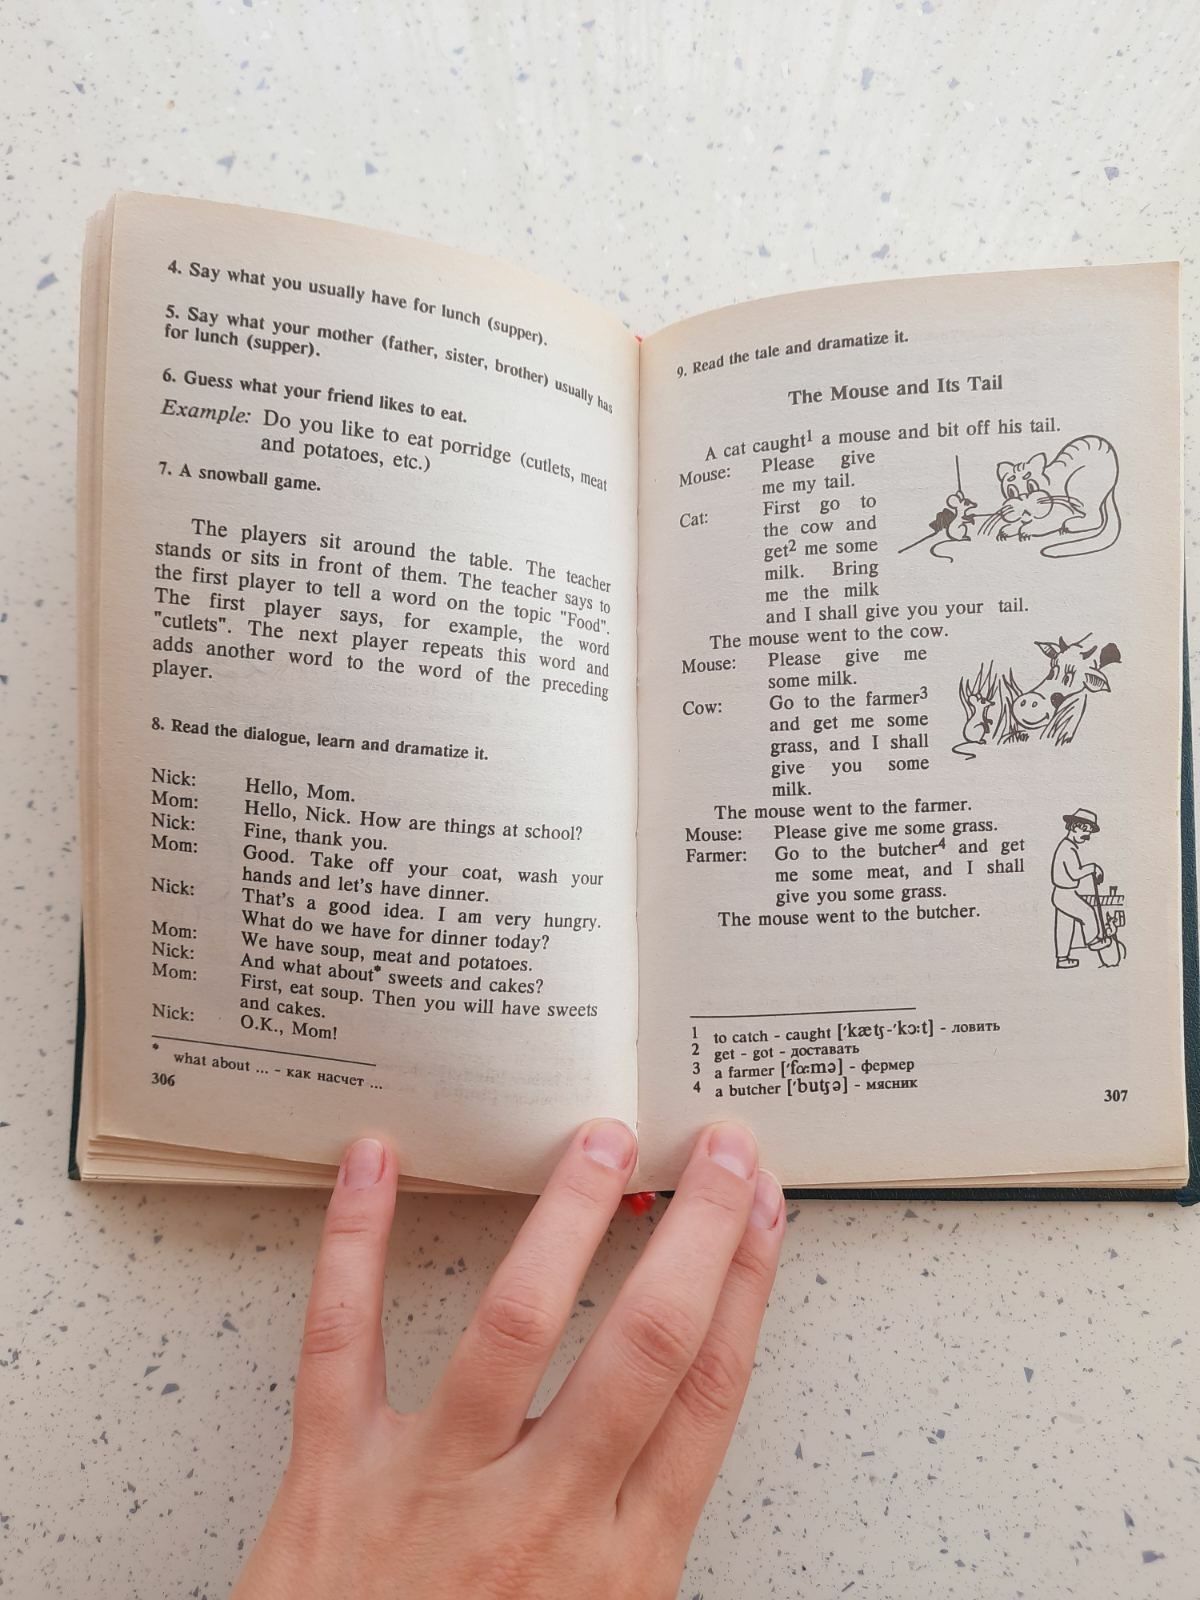 4. Say what you usually have for lunch (supper).
5. Say what your mother (father, sister, brother) usually has
for lunch (supper).
6. Guess what your friend likes to eat.
Example: Do you like to eat porridge (cutlets, meat
and potatoes, etc.)
7. A snowball game.
The players sit around the table. The teacher
stands or sits in front of them. The teacher says to
the first player to tell a word on the topic "Food".
The first player says, for example, the word
"cutlets". The next player repeats this word and
adds another word to the word of the preceding
player.
8. Read the dialogue, learn and dramatize it.
Nick: Hello, Mom.
Mom: Hello, Nick. How are things at school?
Nick: Fine, thank you.
Mom: Good. Take off your coat, wash your
hands and let's have dinner.
Nick: That's a good idea. I am very hungry.
What do we have for dinner today?
Mom: We have soup, meat and potatoes.
Nick: And what about* sweets and cakes?
Mom: First, eat soup. Then you will have sweets
and cakes.
Nick: O.K., Mom!
* what about ... - как насчет ...
306
9. Read the tale and dramatize it.
The Mouse and Its Tail
A cat caught¹ a mouse and bit off his tail.
Mouse: Please give
me my tail.
Cat: First go to
the cow and
get² me some
milk. Bring
me the milk
and I shall give you your tail.
The mouse went to the cow.
Mouse: Please give me
some milk.
Cow: Go to the farmer³
and get me some
grass, and I shall
give you some
milk.
The mouse went to the farmer.
Mouse: Please give me some grass.
Farmer: Go to the butcher⁴ and get
me some meat, and I shall
give you some grass.
The mouse went to the butcher.
1 to catch - caught ['kætʃ-'kɔ:t] - ловить
2 get - got - доставать
3 a farmer ['fɑ:mə] - фермер
4 a butcher ['butʃə] - мясник
307